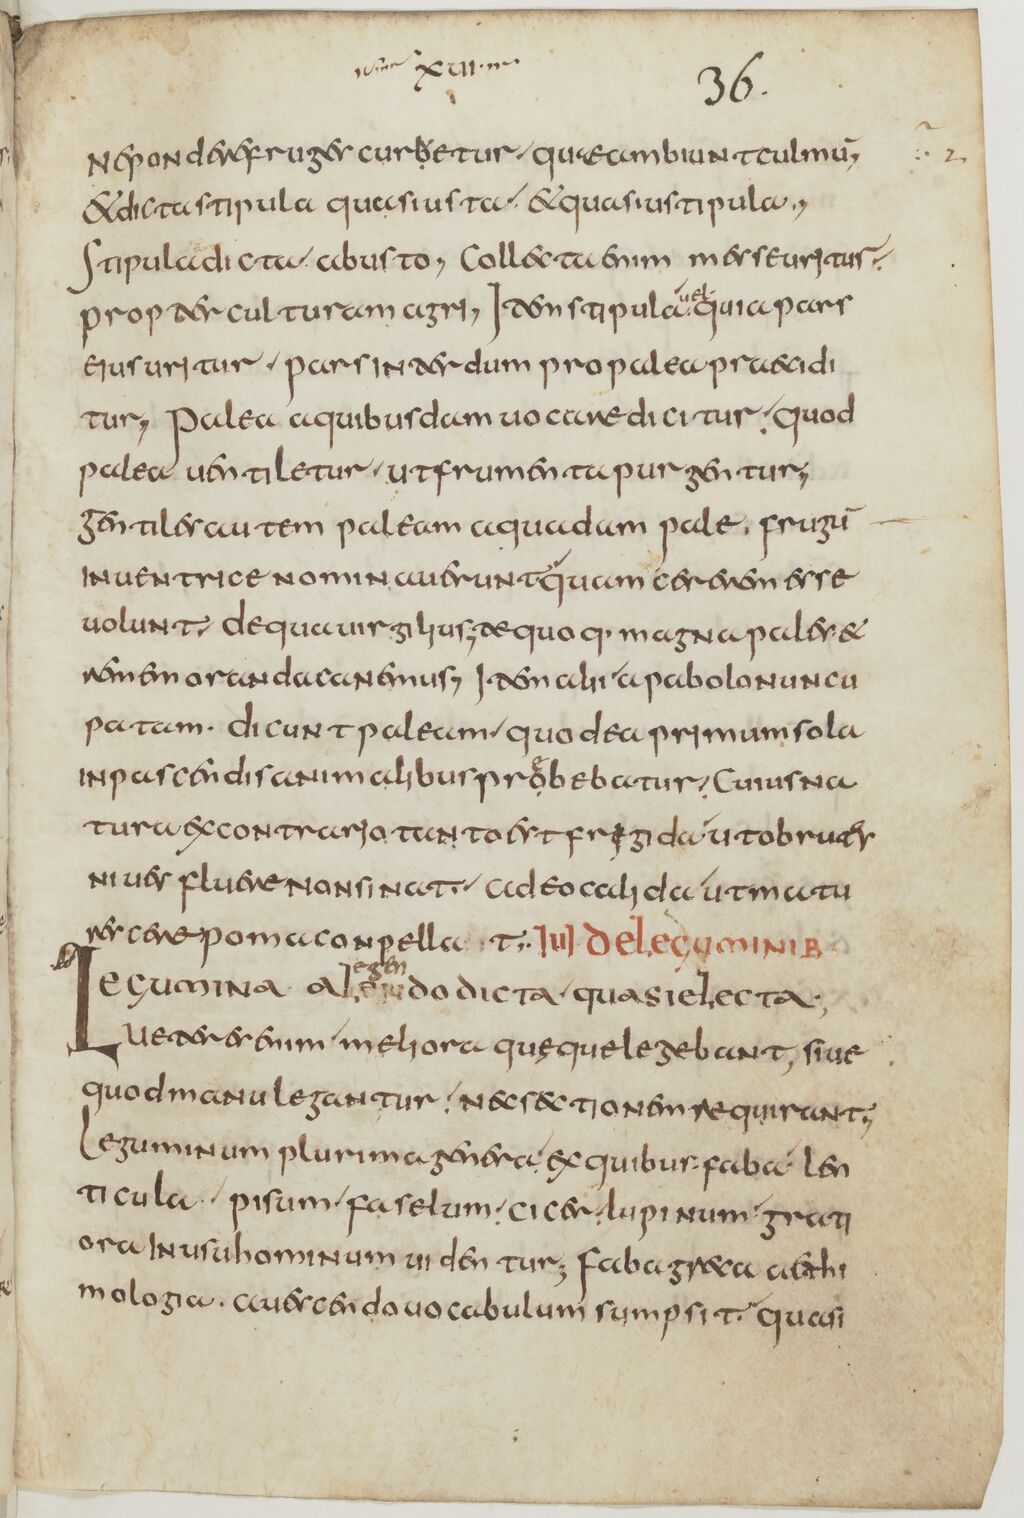 XVII
36.
ne pondere fruges curbetur, quae ambiunt culmū;
& dicta stipula quasi usta, & quasi ustipula.,
Stipula dicta ab usto, Collecta enim messe uritus,
propter culturam agri, Idem stipula uel quia pars
eius uritur, pars interdum pro palea praecidi
tur, Palea a quibusdam uocare dicitur, quod
palea uentiletur, ut frumenta purgentur,
gentiles autem paleam a quadam pale. frugū
inuentrice nominauerunt quam cererem esse
uolunt. de qua uirgilius, te quoq. magna pales &
te memoranda canemus, Idem alii a pabolo nuncu
patam. dicunt paleam, quod ea primum sola
in pascendis animalibus prebebatur, Cuius na
tura ex contrario tanto est frigida ut obrutas
niues fluere non sinat. adeo calida ut matu
rescere poma conpella t. IIII de leguminib
Legumina a legendo dicta quasi electa;
Veteres enim meliora queque legebant, siue
quod manu legantur, nec sectionem requirant;
Leguminum plurima genera, ex quibus faba len
ticula, pisum, faselum, cicer, lupinum grati
ora in usu hominum uidentur; faba greca aethi
mologia. a uescendo uocabulum sumpsit quasi